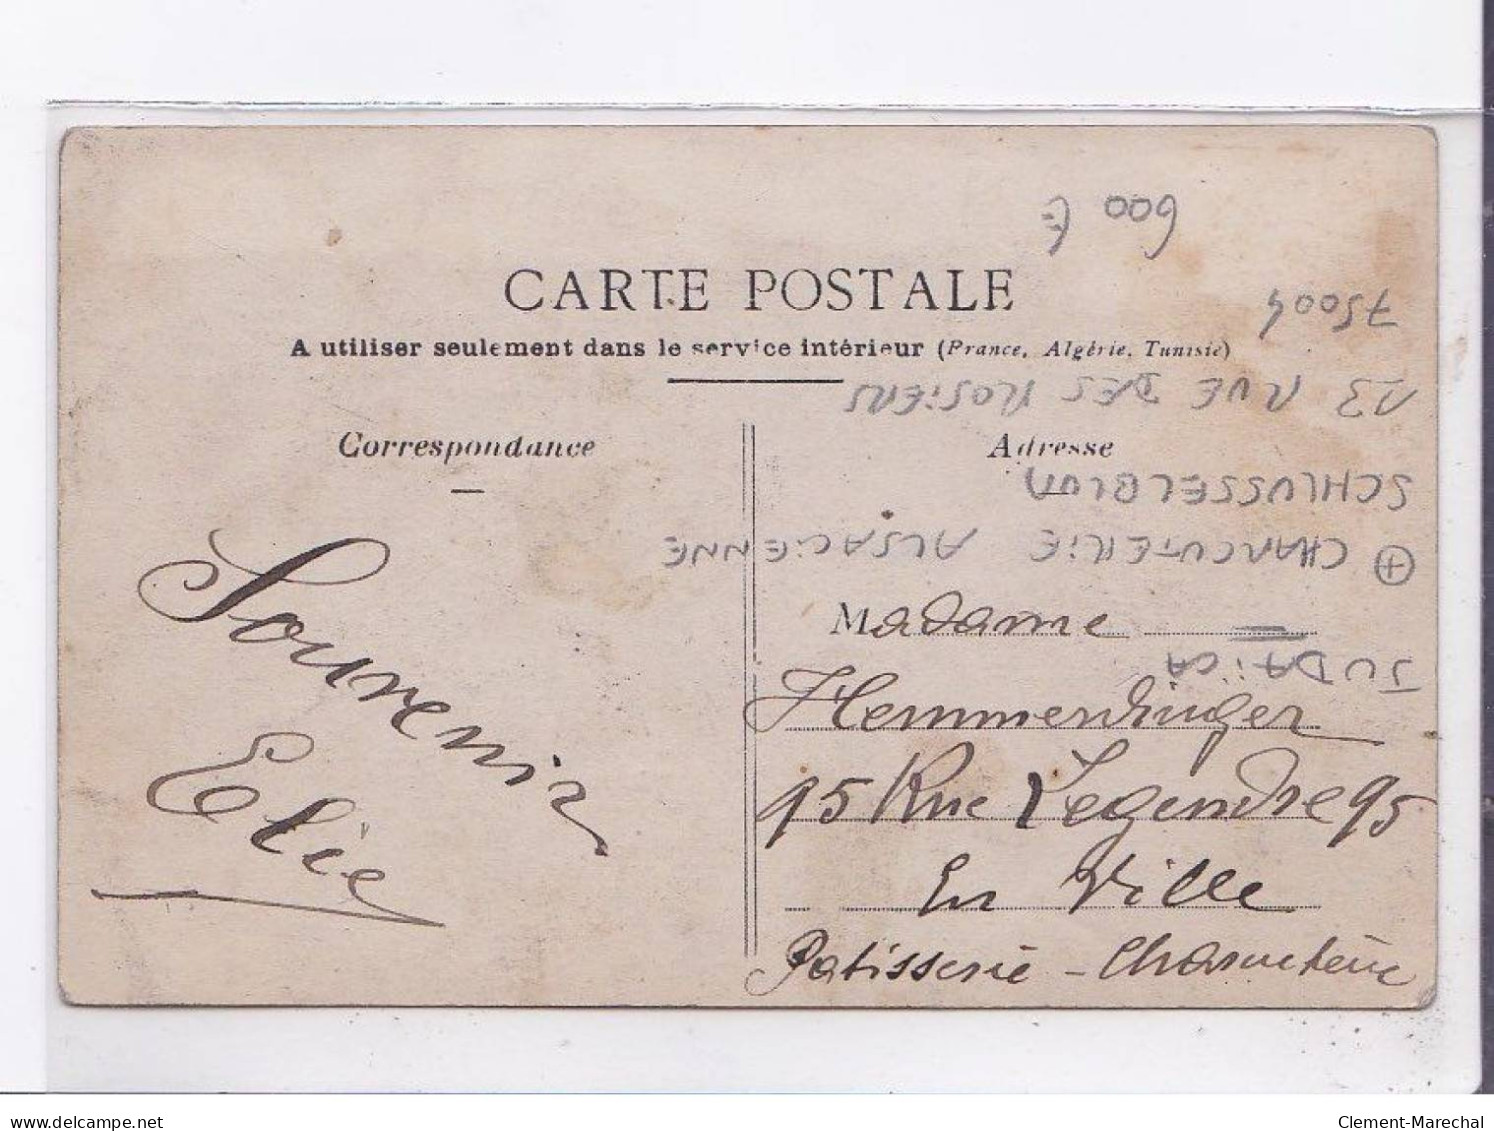 CARTE POSTALE
A utiliser seulement dans le service intérieur (France, Algérie, Tunisie)
Correspondance
Souvenir
Elie
Adresse
Madame
Hemmendinger
95 Rue Legendre 95
En Ville
Patisserie - Charcuterie
JUDAÏCA
⊕ CHARCUTERIE ALSACIENNE
SCHLUSSELBLUM
23 RUE DES ROSIERS
75004
600 €
delcampe.net
Clement-Marechal